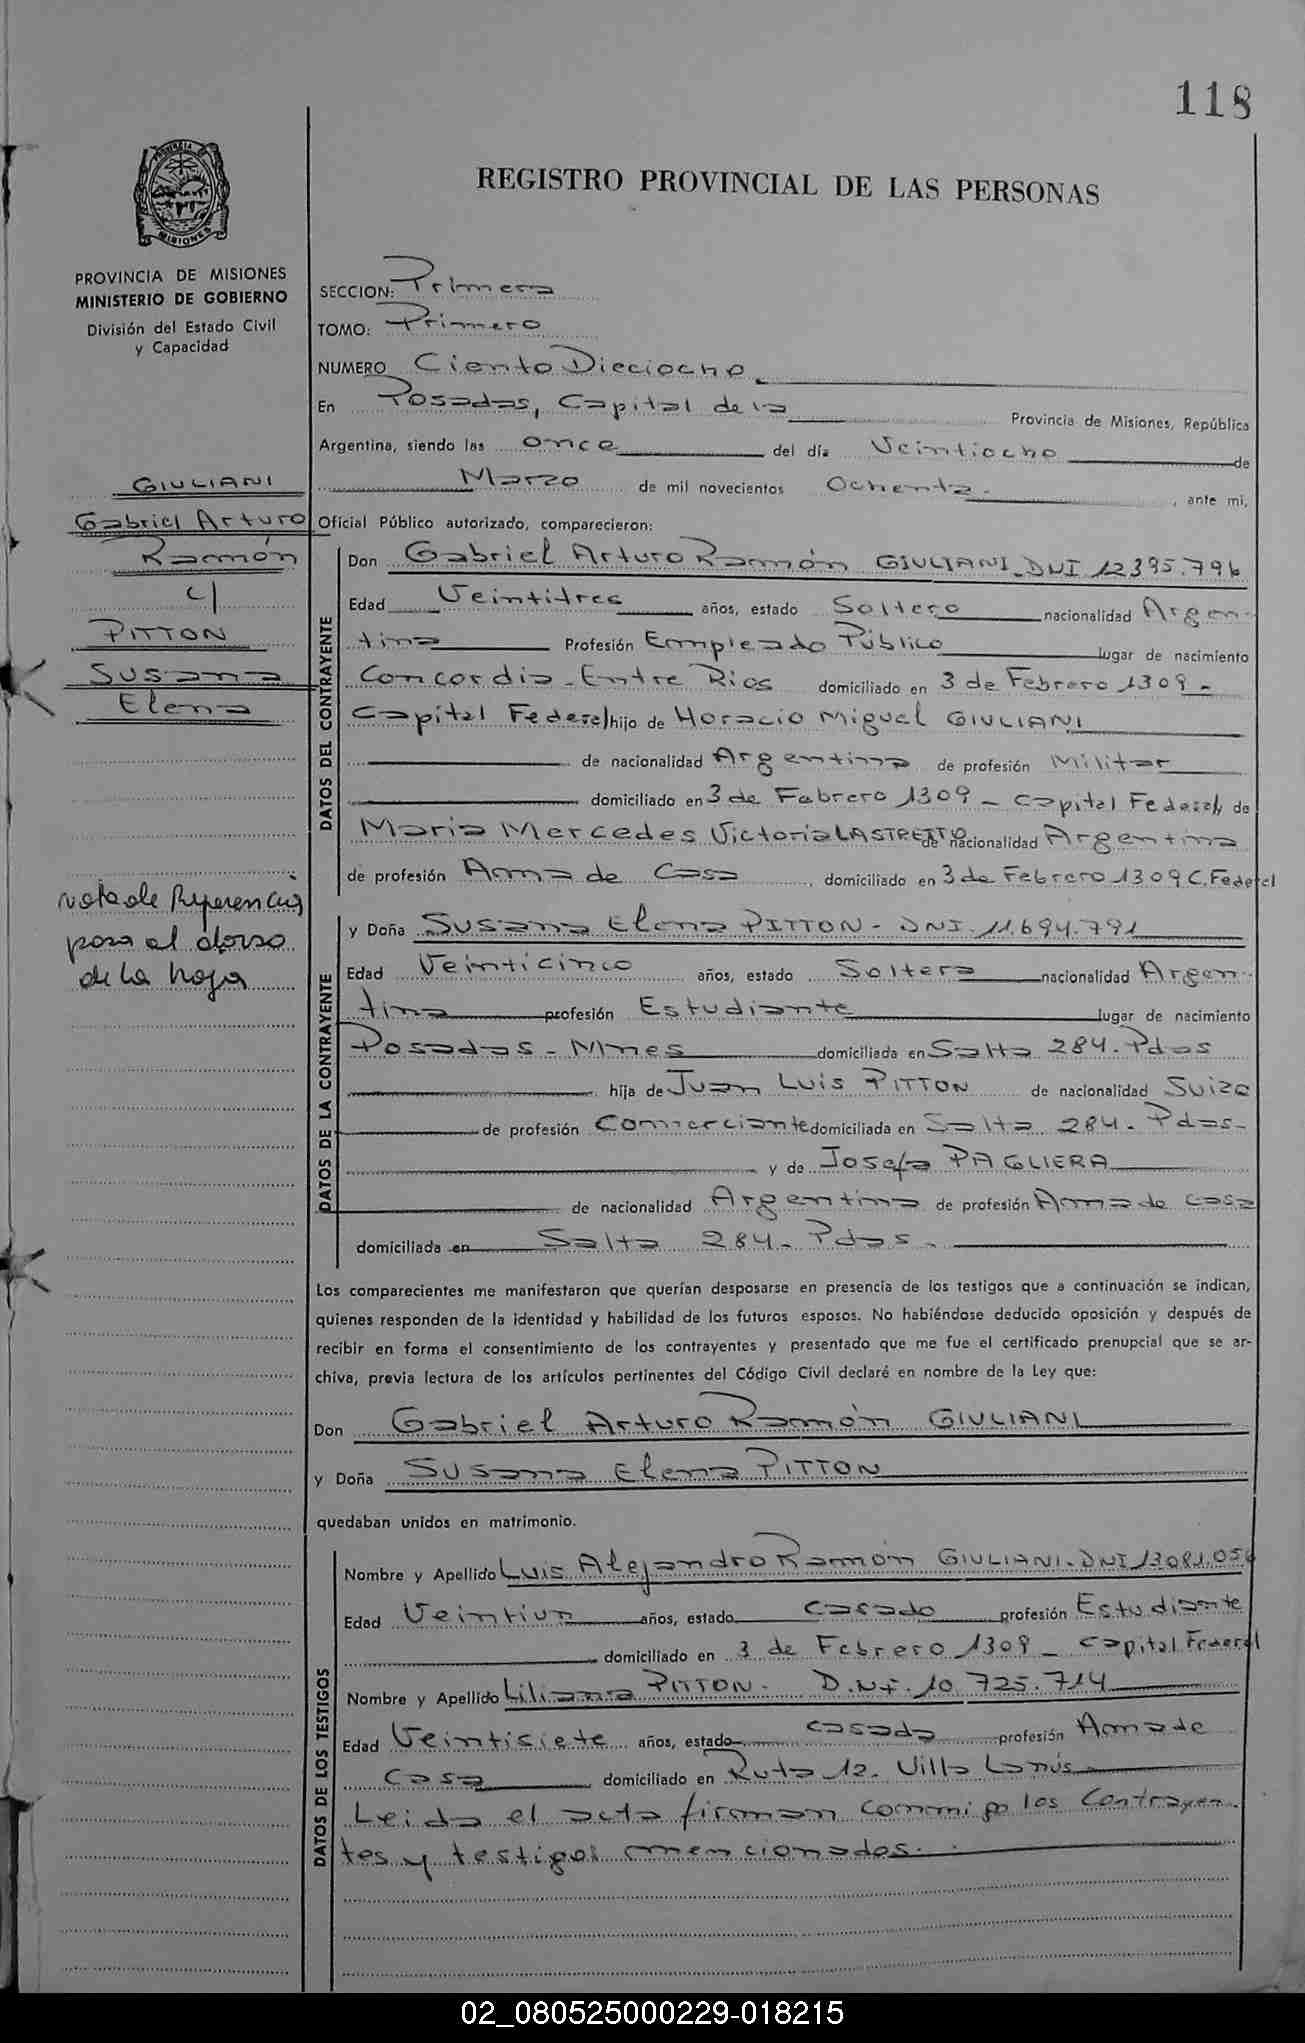 118
REGISTRO PROVINCIAL DE LAS PERSONAS
PROVINCIA DE MISIONES
PROVINCIA DE MISIONES
MINISTERIO DE GOBIERNO
División del Estado Civil
y Capacidad
GIULIANI
Gabriel Arturo
Ramón
c/
PITTON
Susana
Elena
nota de Referencia
pasa al dorso
de la hoja
SECCION: Primera
TOMO: Primero
NUMERO Ciento Dieciocho
En Posadas, Capital de la Provincia de Misiones, República
Argentina, siendo las once del día Veintiocho de
Marzo de mil novecientos Ochenta. , ante mi,
Oficial Público autorizado, comparecieron:
DATOS DEL CONTRAYENTE
Don Gabriel Arturo Ramón GIULIANI. DNI 12395.796
Edad Veintitres años, estado Soltero nacionalidad Argen-
tina Profesión Empleado Público lugar de nacimiento
Concordia - Entre Rios domiciliado en 3 de Febrero 1309 -
Capital Federal hijo de Horacio Miguel GIULIANI
de nacionalidad Argentina de profesión Militar
domiciliado en 3 de Febrero 1309 - Capital Federal y de
Maria Mercedes Victoria LASTRETTO de nacionalidad Argentina
de profesión Ama de Casa , domiciliado en 3 de Febrero 1309 C. Federal
DATOS DE LA CONTRAYENTE
y Doña Susana Elena PITTON - DNI. 11.694.791
Edad Veinticinco años, estado Soltera nacionalidad Argen-
tina profesión Estudiante lugar de nacimiento
Posadas - Mnes domiciliada en Salta 284. Pdas
hija de Juan Luis PITTON de nacionalidad Suiza
de profesión Comerciante domiciliada en Salta 284. Pdas-
y de Josefa PAGLIERA
de nacionalidad Argentina de profesión Ama de casa
domiciliada en Salta 284- Pdas -
Los comparecientes me manifestaron que querían desposarse en presencia de los testigos que a continuación se indican,
quienes responden de la identidad y habilidad de los futuros esposos. No habiéndose deducido oposición y después de
recibir en forma el consentimiento de los contrayentes y presentado que me fue el certificado prenupcial que se ar-
chiva, previa lectura de los artículos pertinentes del Código Civil declaré en nombre de la Ley que:
Don Gabriel Arturo Ramón GIULIANI
y Doña Susana Elena PITTON
quedaban unidos en matrimonio.
DATOS DE LOS TESTIGOS
Nombre y Apellido Luis Alejandro Ramón GIULIANI. DNI 13081.056
Edad Veintiun años, estado casado profesión Estudiante
domiciliado en 3 de Febrero 1309 - Capital Federal
Nombre y Apellido Liliana PITTON. D.N.I. 10 725.714
Edad Veintisiete años, estado casada profesión Ama de
Casa domiciliado en Ruta 12. Villa Lanús
Leida el acta firman conmigo los Contrayen-
tes y testigos mencionados.
02_080525000229-018215